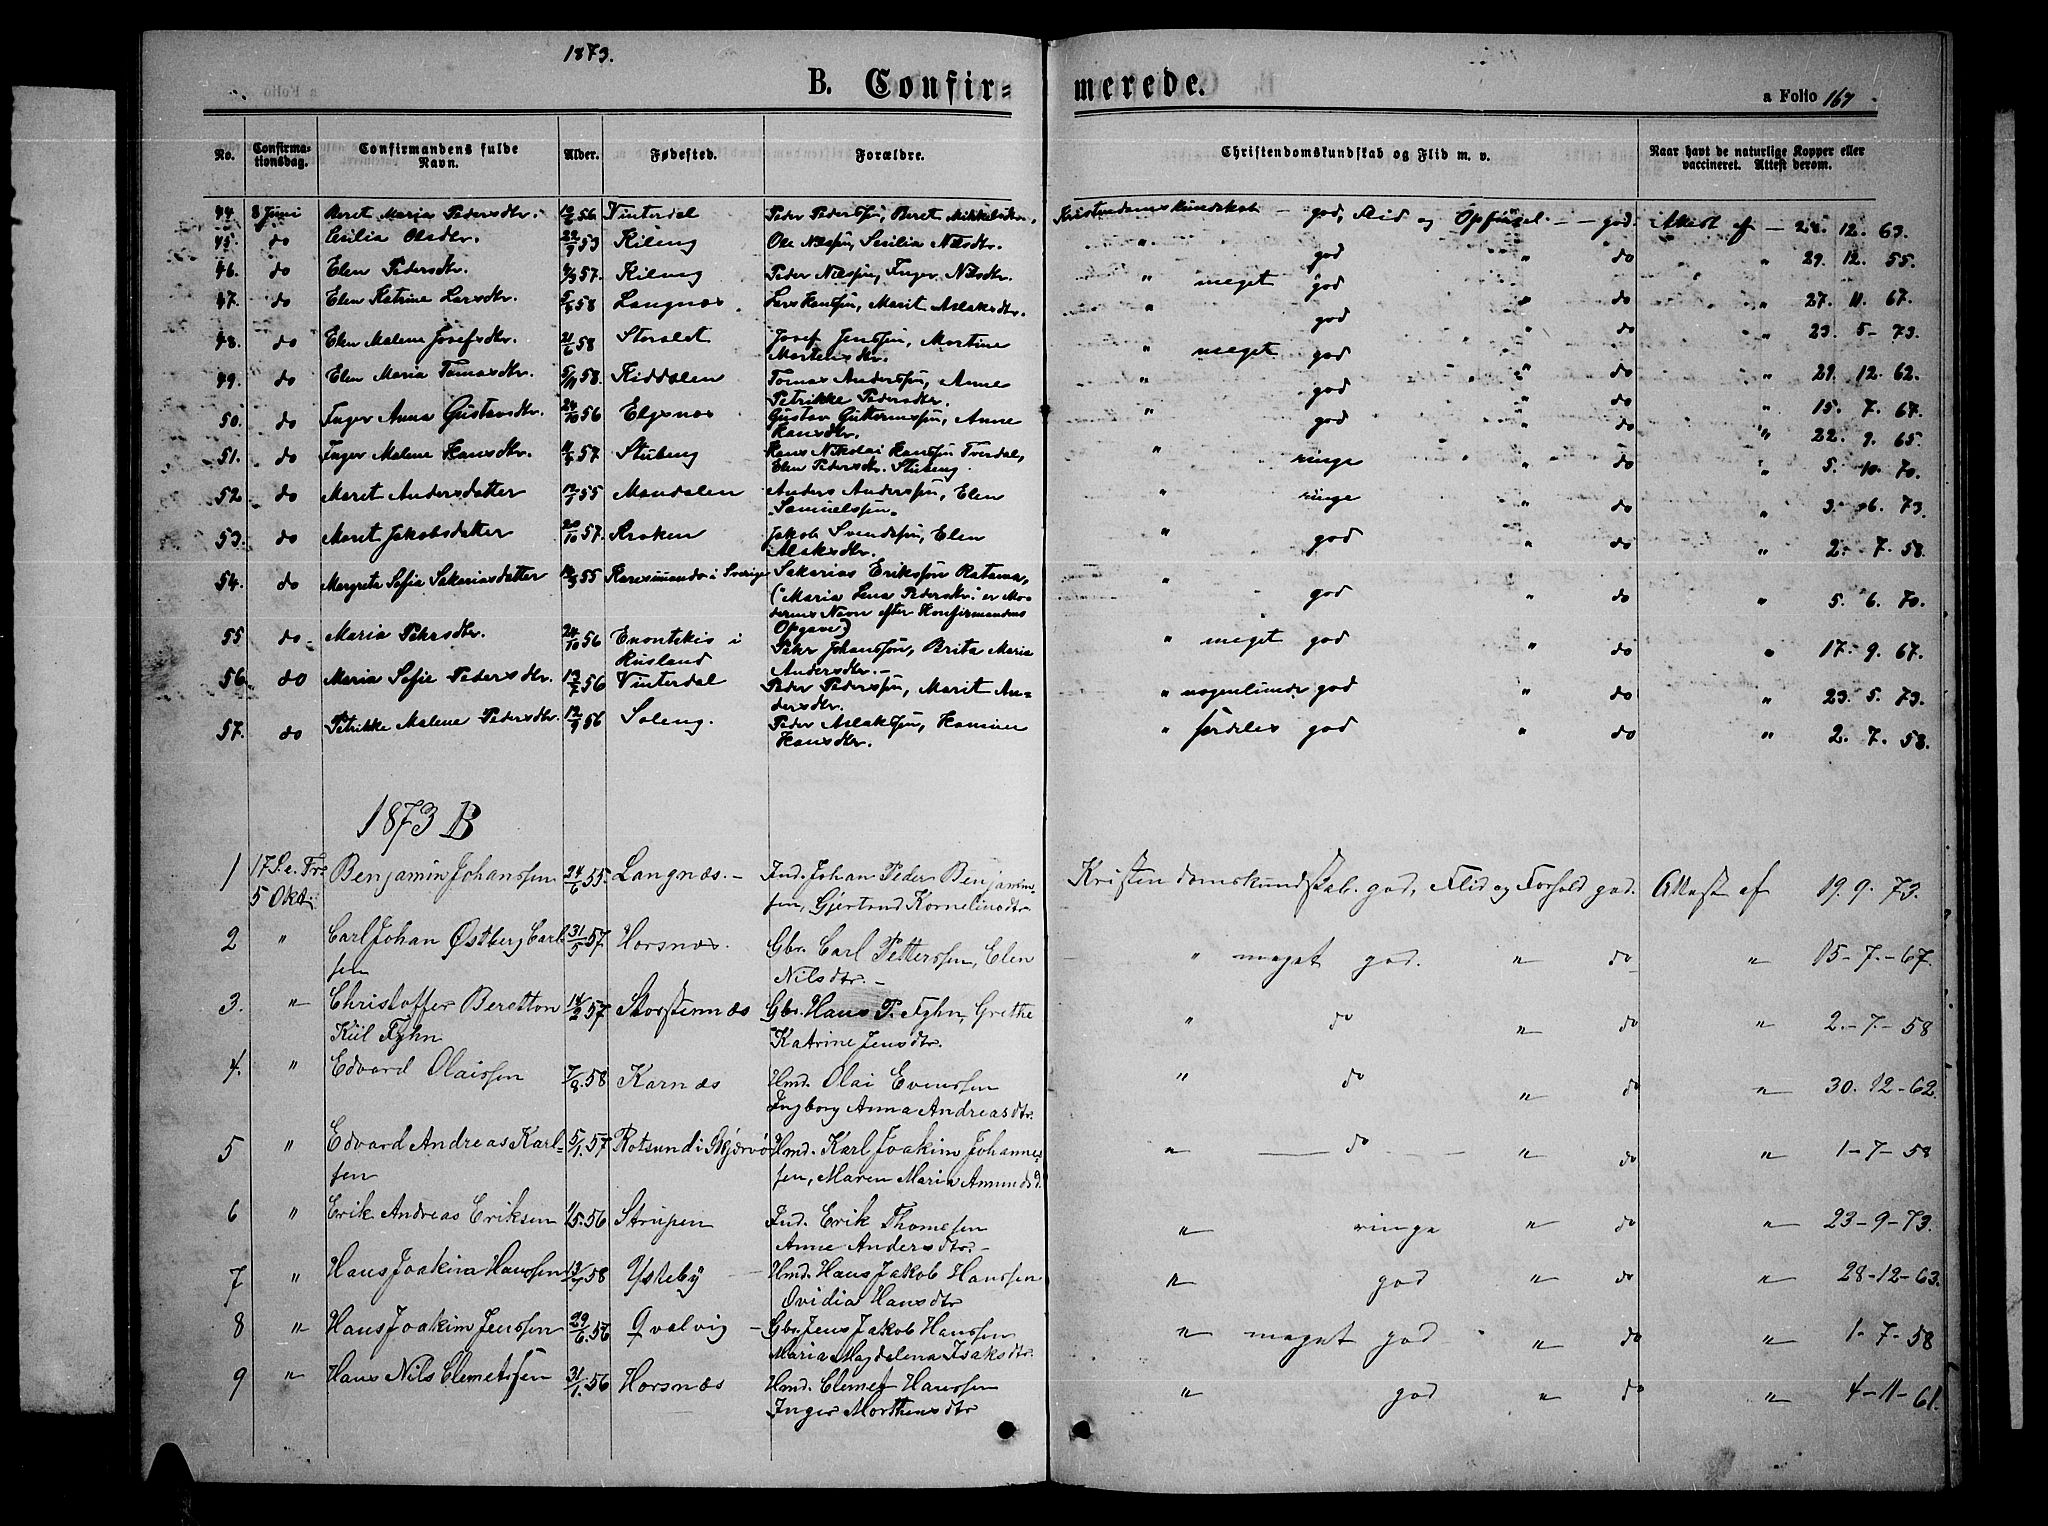 1873.
B. Confir= merede.
a Folio 167
No. Confirma-tionsdag. Confirmandens fulde Navn. Alder. Fødested. Forældre. Christendomskundskab og Flid m. v. Naar havt de naturlige Kopper eller vaccineret. Attest derom.
44 8 Juni Beret Maria Pedersdtr. 56 Vinterdal Peder Pederssøn, Beret Kristendomskundskab god, Flid og Opførsel god. Attest af 12. 63.
45. do Cesilia Olsdtr. 53 Kileng Ole Nilssøn, Sesilia Nilsdtr. " god " do " 29. 12. 55.
46. do Elen Pedersdtr. 57. Kileng Peder Nilssøn, Inger Nilsdtr. " meget god " do " 27. 11. 67.
47. do Elen Katrine Larsdtr. 58 Langnæs Lars Hanssøn, Marit Aslaksdtr. " god " do " 23. 5- 73.
48. do Elen Malene Josefsdtr. 21/6 58 Storslet Josef Jenssøn, Mortine
Mortensdtr. " meget god " do " 29. 12. 62.
49. do Elen Maria Tomasdtr. 58. Kiddalen Tomas Anderssøn, Anne
Petrikke Pedersdtr. " god " do " 15. 7. 67.
50. do Inger Anna Gustavsdtr. 24/10 56 Elgsnæs Gustav Guttormssøn, Anne
Hansdtr. " god " do " 22. 9. 65.
51. do Inger Malene Hansdtr. 57. Stubeng Hans Nikolai Hanssøn Tverdal,
Elen Pedersdtr. Stubeng. " ringe " do " 5. 10. 70.
52. do Maret Andersdatter 55 Mandalen Anders Anderssøn, Elen
Samuelssøn " ringe " do " 3. 6. 73.
53. do Maret Jakobsdatter 20/10 57. Kroken Jakob Svendssøn, Elen
Aslaksdtr. " god " do " 2. 7. 58.
54. do Margreta Sofia Sakariasdatter 55 Karesuando i Sverige Sakarias Erikssøn Ratama,
("Maria Lena Pedersdtr." er Mo-
derens Navn efter Konfirmandens
Opgave) " god " do " 5. 6. 70.
55 do Maria Pehrsdtr. 24/10 56 Enontekis i
Rusland Pehr Johanssøn, Brita Maria
Andersdtr. " meget god " do " 17. 9. 67.
56. do Maria Sofie Pedersdtr. 56 Vinterdal Peder Pederssøn, Marit An-
dersdtr. " nogenlunde god " do " 23. 5. 73.
57. do Petrikke Malene Pedersdtr. 12/9 56 Soleng. Peder Aslakssøn, Hansine
Hansdtr. " særdeles god " do " 2. 7. 58.
1873 B
1 17 S. e. Tr. 5 Okt. Benjamin Johanssen 24/6 55. Langnæs. Ind. Johan Peder Benjamin-
sen, Gjertrud Korneliusdtr. Kristendomskundskab. god, Flid og Forhold god. Attest af 19. 9. 73.
2 " Carl Johan Østberg Carl-
sen 31/5 57 Horsnæs. Gbr. Carl Pettersen, Elen
Nilsdtr. " meget god. " do " 15-7.-67.
3. " Christoffer Beretton
Kiil Fyhn 14/2 57 Storstennæs Gbr. Hans P. Fyhn, Grethe
Katrine Jensdtr. " do " do " 2.-7-58
4. " Edvard Olaissen 7/8. 58 Karnæs Hmd. Olai Evenssen
Ingborg Anna Andreasdtr. " do " do " 30. 12-62.
5 " Edvard Andreas Karl-
sen 5/1. 57 Rotsund i Skjærvø Hmd. Karl Joakim Johanne-
sen, Maren Maria Amundsd. " do " do " 1-7-58
6 " Erik Andreas Eriksen 56 Strupen Ind. Erik Thomesen
Anne Andersdtr. " ringe " do " 23-9-73.
7 " Hans Joakim Hanssen 58 Ysteby Hmd. Hans Jakob Hanssen
Ovidia Hansdtr " god " do " 28-12-63.
8 " Hans Joakim Jenssen 29/6. 56 Qvalvig Gbr. Jens Jakob Hanssen
Maria Magdelena Isaksdtr. " meget god " do " 1-7-58
9 " Hans Nils Clemetssen 31/1. 56 Horsnæs Hmd. Clemet Hanssen
Inger Morthensdtr " god " do " 4-11-61.